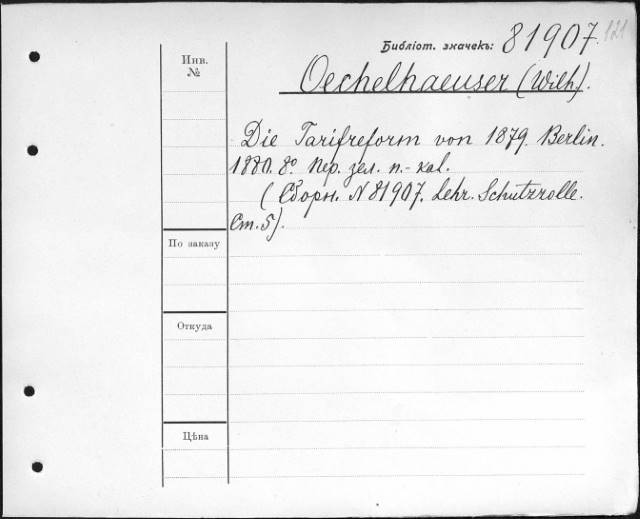 121
Библіот. значекъ: 81907.
Инв.
№
Oechelhaeuser (Wilh.).
Die Tarifreform von 1879. Berlin.
1880. 8º. Пер. зел. п.-кал.
(Сборн. N 81907. Lehr. Schutzzolle.
Ст. 5).
По заказу
Откуда
Цѣна